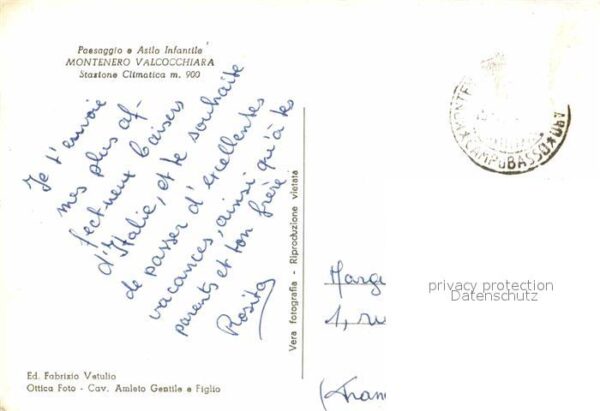 Paesaggio e Asilo Infantile
MONTENERO VALCOCCHIARA
Stazione Climatica m. 900
Je t'envoie
mes plus af-
fectueux baisers
d'Italie, et te souhaite
de passer d'excellentes
vacances, ainsi qu'à tes
parents et ton frère
Rosita
Vera fotografia - Riproduzione vietata
CAMPOBASSO
Marg
1, ru
(Fran
privacy protection
Datenschutz
Ed. Fabrizio Vetulio
Ottica Foto - Cav. Amleto Gentile e Figlio